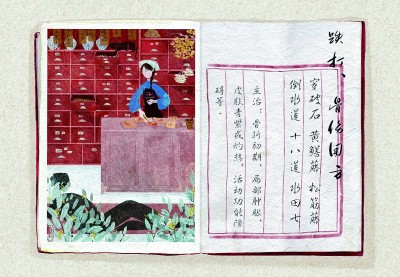 跌打、骨伤用方
穿破石 黄鳝藤 松筋藤
倒水道 十八道 水田七
主治：骨折初期 局部肿胀、
皮肤青紫或灼热，活动功能障
碍等．